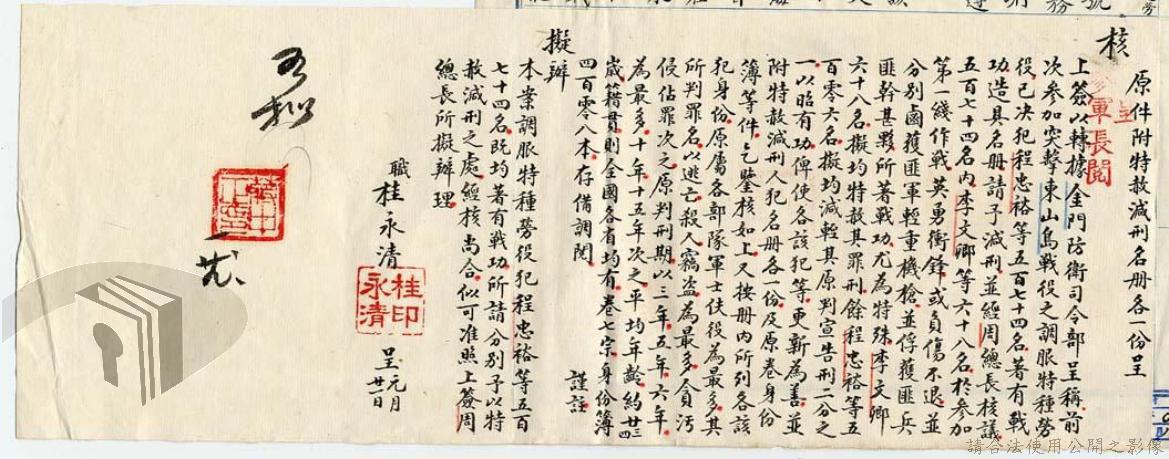 核
原件附特赦減刑名册各一份呈
呈
參軍長閱
上簽以轉據金門防衛司令部呈稱前
次參加突擊東山島戰役之調服特種勞
役已决犯程忠裕等五百七十四名著有戰
功造具名册請予減刑並經周總長核議
五百七十四名内李文卿等六十八名於參加
第一綫作戰英勇衝鋒或負傷不退並
分别鹵獲匪軍輕重機槍並俘獲匪兵
匪幹甚夥所著戰功尤為特殊李文卿
六十八名擬均特赦其罪刑餘程忠裕等五
百零六名擬均減輕其原判宣告刑二分之
一以昭有功俾使各該犯等更新為善並
附特赦減刑人犯名册各一份及原卷身份
簿等件乞鑒核如上又按册内所列各該
犯身份原屬各部隊軍士伕役為最多其
所判罪名以逃亡殺人竊盜為最多貪污
侵佔罪次之原判刑期以三年五年六年
為最多十年十五年次之平均年齡約廿三四
歲籍貫則全國各省均有卷七宗身份簿
四百零八本存備調閱 謹註
擬辦
本案調服特種勞役犯程忠裕等五百
七十四名既均著有戰功所請分别予以特
赦減刑之處經核尚合似可准照上簽周
總長所擬辦理
職桂永清
桂永清印
呈 元月廿日
可
蔣中正印
請合法使用公開之影像